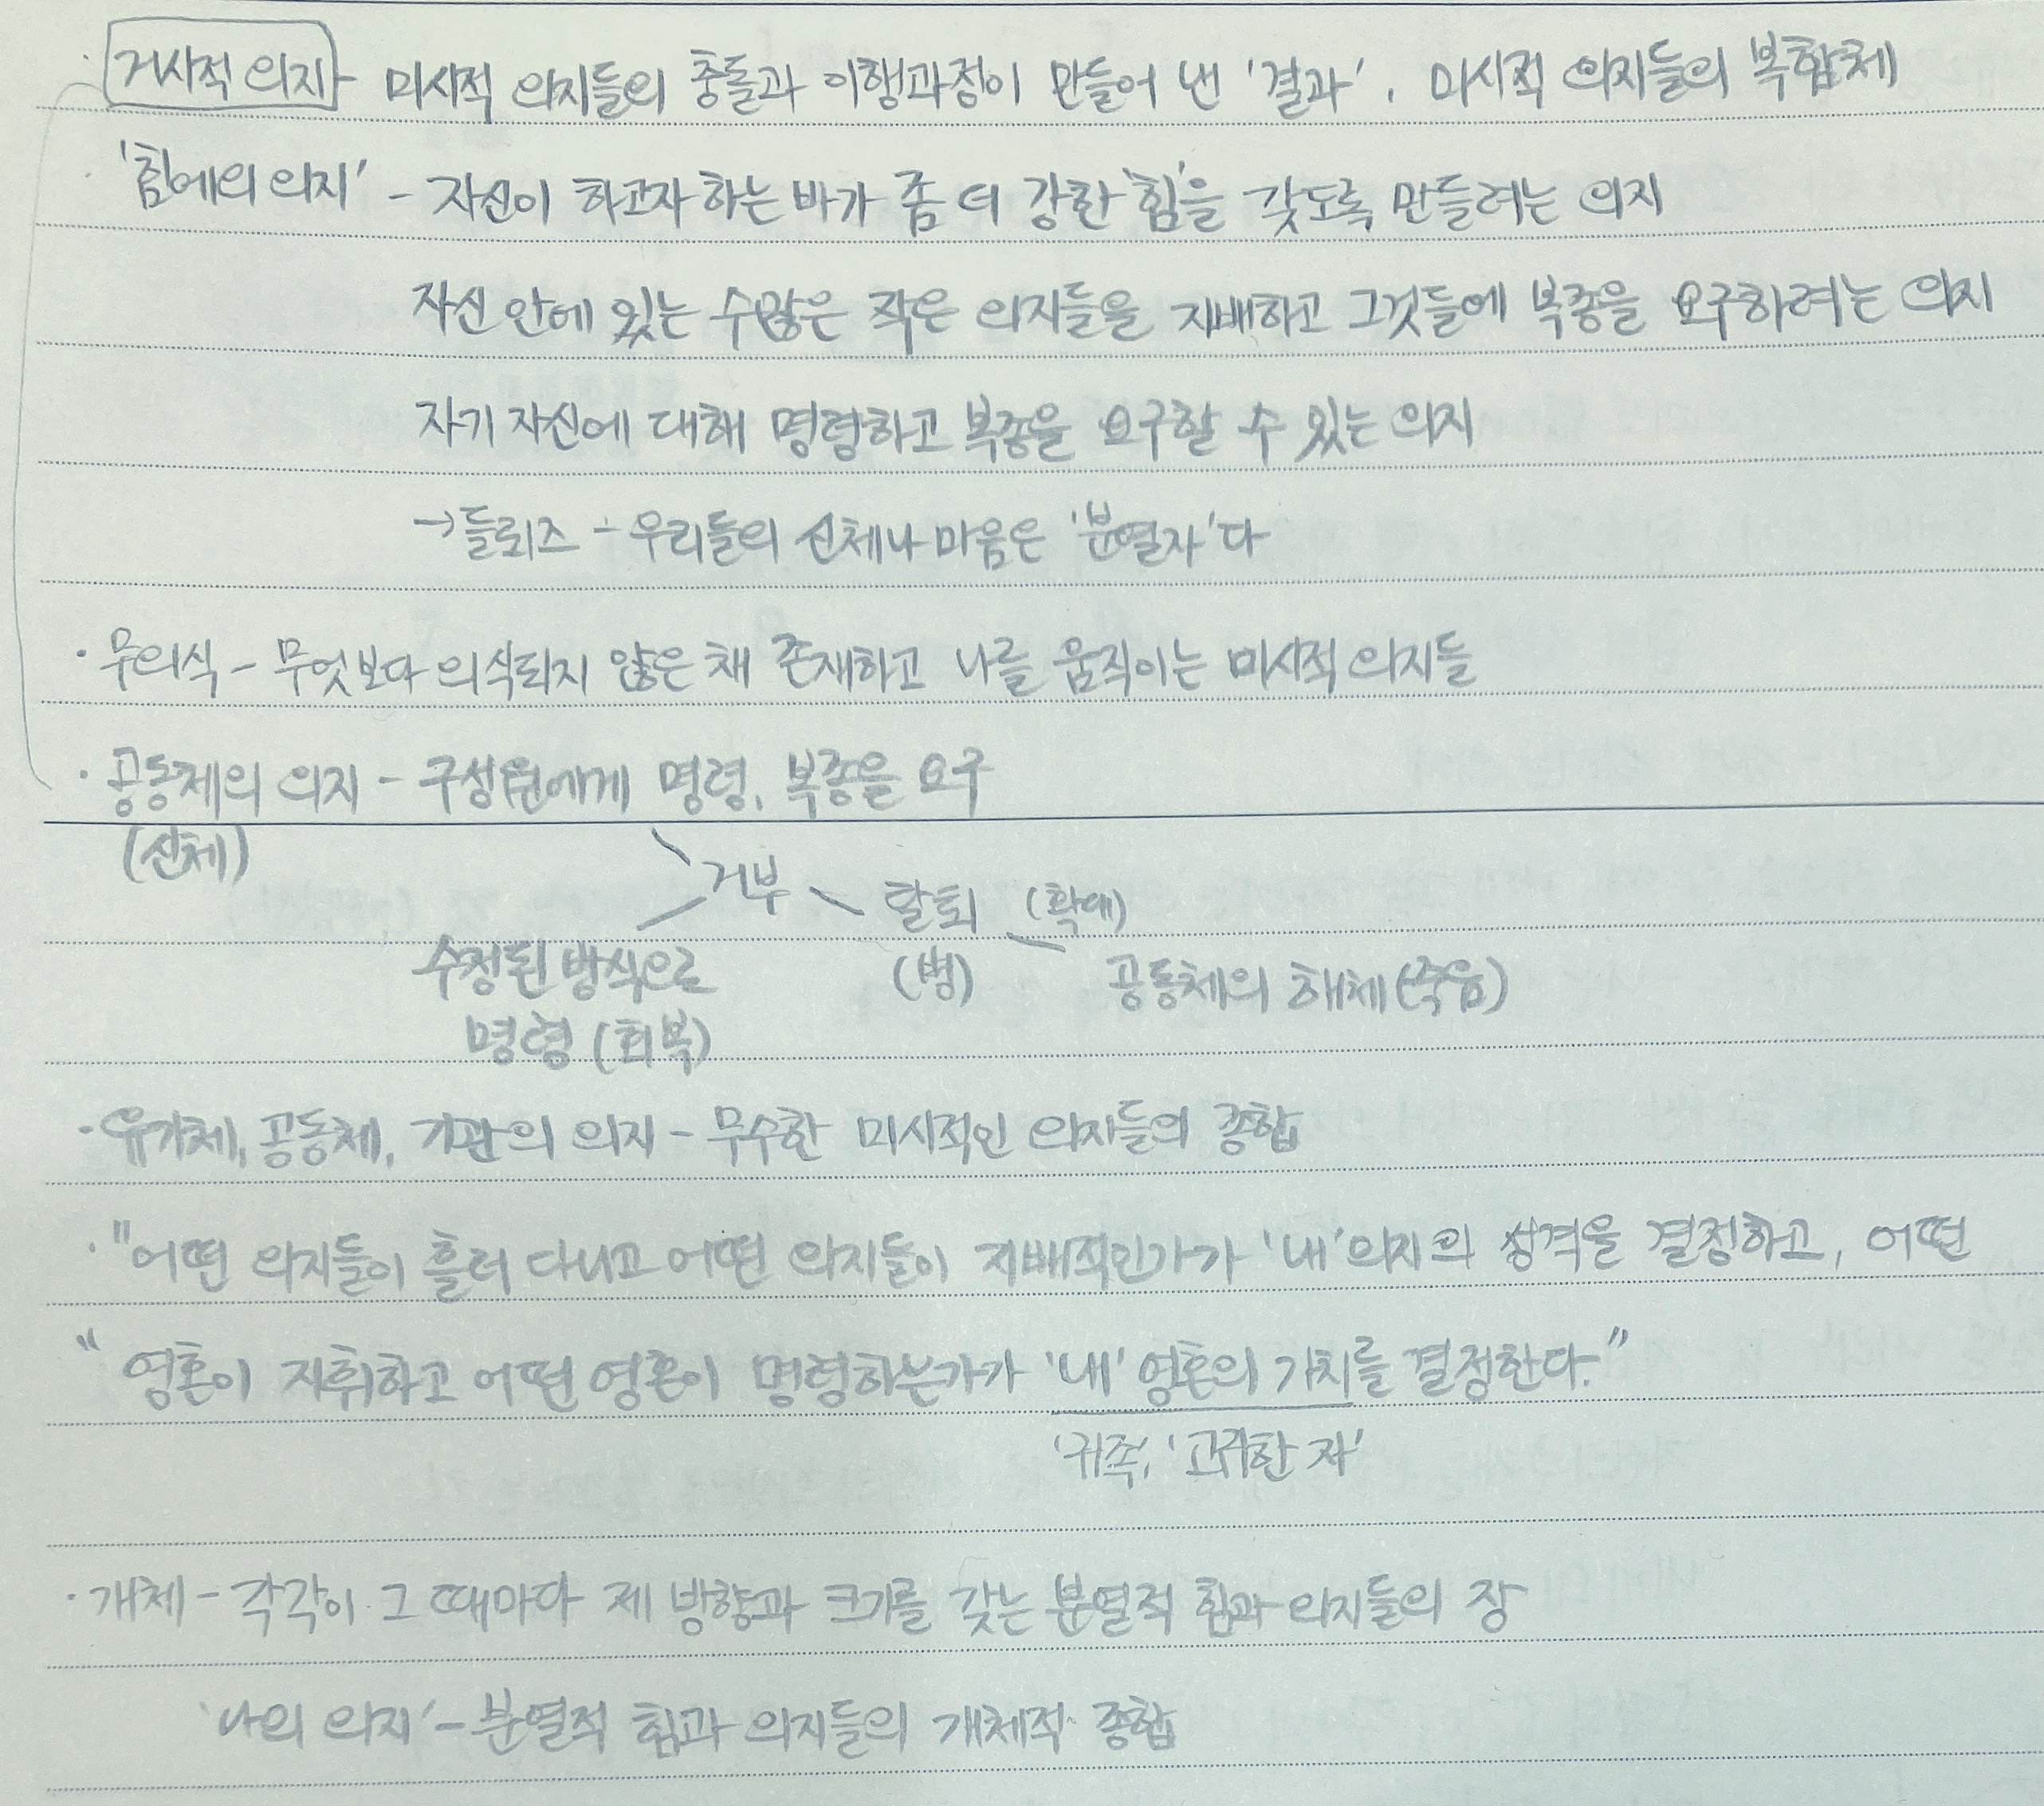 · 거시적 의지 - 미시적 의지들의 충돌과 이행과정이 만들어 낸 '결과'. 미시적 의지들의 복합체
· '힘에의 의지' - 자신이 하고자 하는 바가 좀 더 강한 '힘'을 갖도록 만들려는 의지
자신 안에 있는 수많은 작은 의지들을 지배하고 그것들에 복종을 요구하려는 의지
자기 자신에 대해 명령하고 복종을 요구할 수 있는 의지
→ 들뢰즈 - 우리들의 신체나 마음은 '분열자'다
· 무의식 - 무엇보다 의식되지 않은 채 존재하고 나를 움직이는 미시적 의지들
· 공동체의 의지 - 구성원에게 명령, 복종을 요구
(신체)
거부 - 탈퇴 (확대)
수정된 방식으로 (병) 공동체의 해체(죽음)
명령 (회복)
· 유기체, 공동체, 기관의 의지 - 무수한 미시적인 의지들의 종합
· "어떤 의지들이 흘러 다니고 어떤 의지들이 지배적인가가 '내' 의지의 성격을 결정하고, 어떤
" 영혼이 지휘하고 어떤 영혼이 명령하는가가 '내' 영혼의 가치를 결정한다."
'귀족', '고귀한 자'
· 개체 - 각각이 그 때마다 제 방향과 크기를 갖는 분열적 힘과 의지들의 장
'나의 의지' - 분열적 힘과 의지들의 개체적 종합